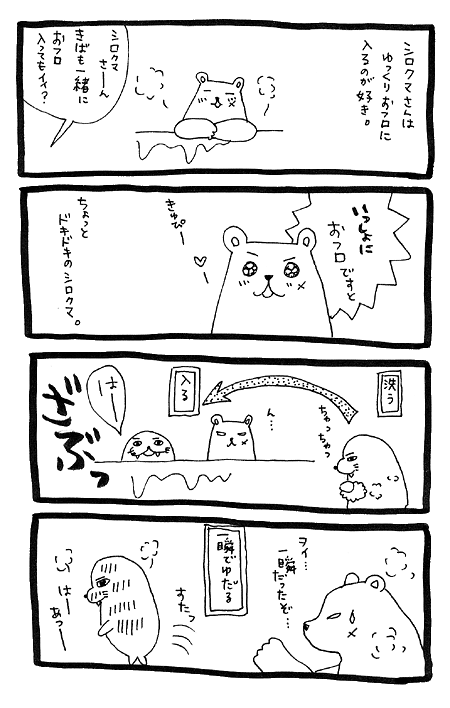 シロクマさんは
ゆっくりおフロに
入るのが好き。
シロクマ
さーん
きばも一緒に
おフロ
入ってもイイ?
いっしょに
おフロですと
きゅぴー
♡
ちょっと
ドキドキのシロクマ。
洗う
ちゃっちゃっ
入る
ん…
はー
ざぶっ
ヲイ…
一瞬
だったぞ…
一瞬でゆだる
すたっ
はー
あつー